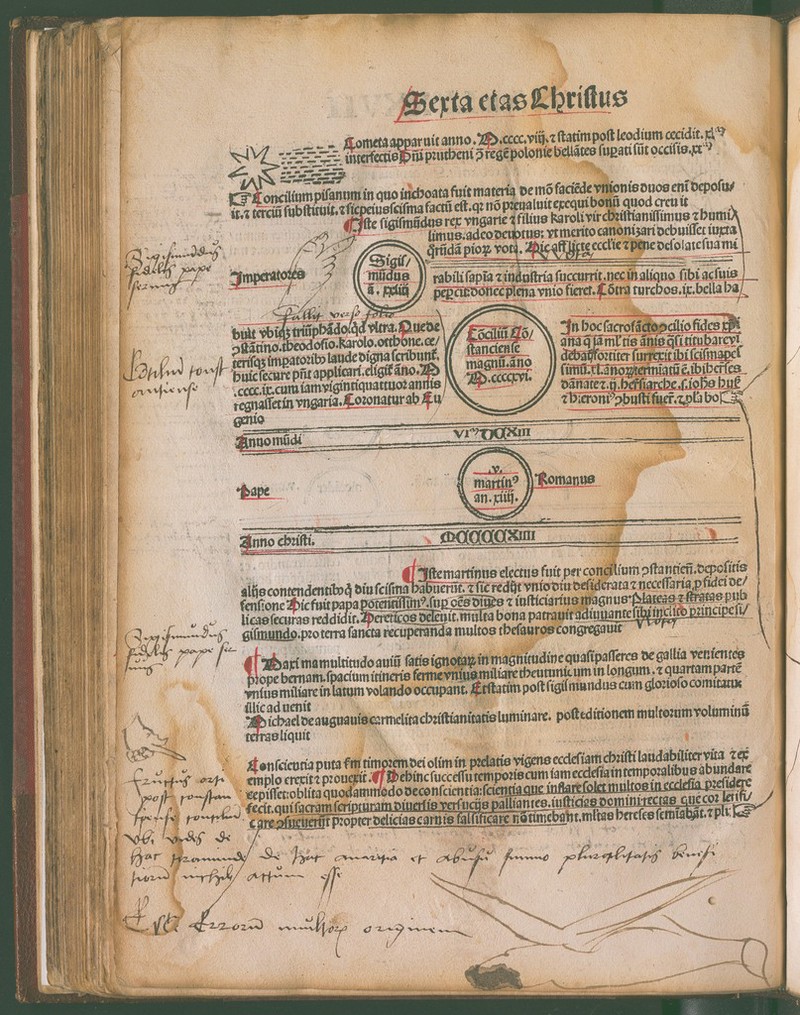 Sexta etas Christus
Cometa apparuit anno .M.cccc.viij. ⁊ statim post leodium cecidit. xl
interfectis Prutheni ꝯ regē polonie bellātes suꝑati sūt occisis.
Concilium pisanum in quo inchoata fuit materia de mō faciēde vnionis duos enī deposu/
it. ⁊ terciū substituit. ⁊ sic peius scisma factū est. qꝛ nō preualuit exequi bonū quod creuit
Iste sigismūdus rex vngarie ⁊ filius karoli vir christianissimus ⁊ humi/
limus. adeo deuotus: vt merito canonizari debuisset iuxta
pioꝝ vota. Hic afflicte ecclīe ⁊ pene desolate sua mi
Sigismundus
fidelis pape
seruus
Imperatores
Sigis/
mūdus
ā. xxiij
rabili sapīa ⁊ industria succurrit. nec in aliquo sibi ac suis
peꝑcit: donec plena vnio fieret. Cōtra turchos. ix. bella ha
fallit verso folio
buit vbiqꝫ triūphādo. qd vltra. Quede
ꝯstātino. theodosio. karolo. otthone. ce/
terisqꝫ imꝑatorib⁹ laude digna scribunt̄.
huic secure pn̄t applicari. eligit̄ āno. M
.cccc.ix. cum iam viginti quattuor annis
regnasset in vngaria. Coronatur ab Eu
genio
Cōciliū Cō/
stanciense
magnū. āno
M.ccccxvi.
In hoc sacrosācto ꝯcilio fides xp̄i
debac̄ fortiter surrexit ibi scisma
dānate. ⁊. ij. heresiarche. s. iohēs huß
⁊ hieroni⁹ ꝯbusti fuer̄t.
Anno mūdi
VIᴹDCXIII
Pape
.v.
martin⁹
an. xiiij.
Romanus
Anno christi.
MCCCCXIIII
Iste martinus electus fuit per concilium ꝯstantieñ. depositis
alijs contendentibꝰ qͥ diu scisma habuerūt. ⁊ sic redijt vnio diu desiderata ⁊ necessaria ꝓ fidei de/
fensione Hic fuit papa potentissim⁹. suꝑ oēs diues ⁊ iusticiarius magnus. Plateas ⁊ stratas pub
licas securas reddidit. Hereticos deleuit. multa bona patrauit adiuuante sibi inclito principe si/
gismundo. pro terra sancta recuperanda multos thesauros congregauit
Sigismundus
fidelis pape
Maxima multitudo auiū satis ignotaꝝ in magnitudine quasi passeres de gallia venientes
prope bernam. spacium itineris ferme vnius miliare theutunicum in longum. ⁊ quartam partē
vnius miliare in latum volando occupant. Et statim post sigismundus cum glorioso comitatu
illic aduenit
Michael de auguanis carmelita christianitatis luminare. post editionem multorum voluminū
terras liquit
Conscientia puta ꝑm timorem dei olim in prelatis vigens ecclesiam christi laudabiliter vita ⁊ ex
emplo erexit ⁊ prouexit. Dehinc successu temporis cum iam ecclesia in temporalibus abundare
cepisset: oblita quodammodo de conscientia: scientia que inflare solet multos in ecclesia presidere
fecit. qui sacram scripturam diuersis versucijs palliantes. iusticias domini rectas que cor letifi/
care ꝯsueuerūt propter delicias carnis falsificare nō timebant. mltas hereses semīabāt. ⁊ pl
Fructus orti
post constan
tiense concilium
vbi vides de
de hac auaritia et abusu summo pluralitatis benefi
tiorum nichil actum esse
Errorum multorum originem